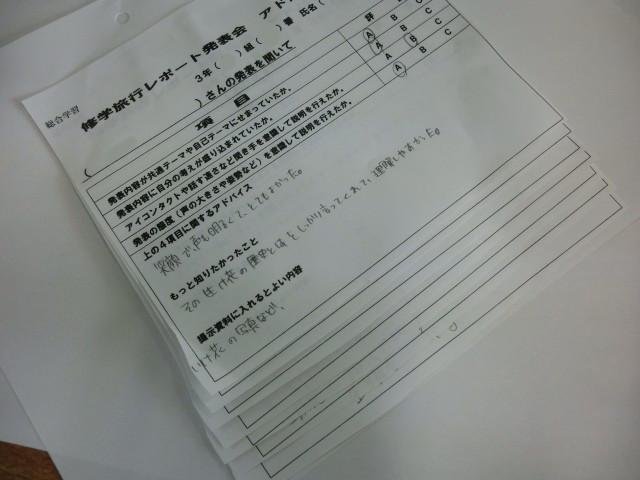 総合学習
修学旅行レポート発表会 アド
3年( )組( )番 氏名(
( )さんの発表を聞いて
項目 評
発表内容が共通テーマや自己テーマにせまっていたか。 A B C
発表内容に自分の考えが盛り込まれていたか。 A B C
アイコンタクトや話す速さなど聞き手を意識して説明を行えたか。 A B C
発表の態度(声の大きさや姿勢など)を意識して説明を行えたか。 A B C
上の4項目に関するアドバイス
笑顔で声も明るくて、とてもよかった。
しっかり言ってくれて、理解しやすかった。
もっと知りたかったこと
その生け花の歴史
提示資料に入れるとよい内容
いけ花の写真など、